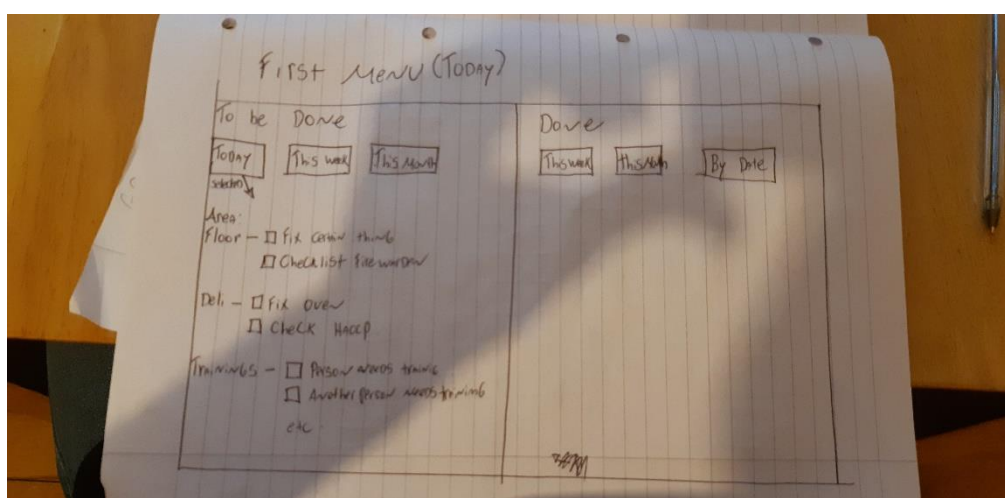 First Menu (Today)
To be Done
Today
This week
This Month
selected
Area:
Floor - Fix certain thing
Checklist fire warden
Deli - Fix oven
Check HACCP
Trainings - Person needs training
Another person needs training
etc
Done
This week
this Month
By Date